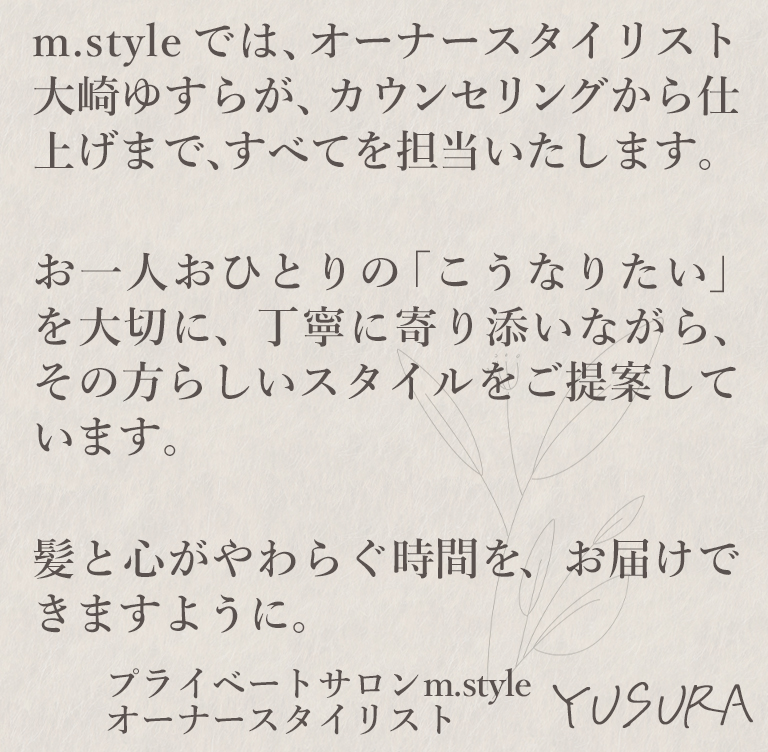 m.style では、オーナースタイリスト
大崎ゆすらが、カウンセリングから仕
上げまで、すべてを担当いたします。
お一人おひとりの「こうなりたい」
を大切に、丁寧に寄り添いながら、
その方らしいスタイルをご提案して
います。
髪と心がやわらぐ時間を、お届けで
きますように。
プライベートサロンm.style
オーナースタイリスト
YUSURA